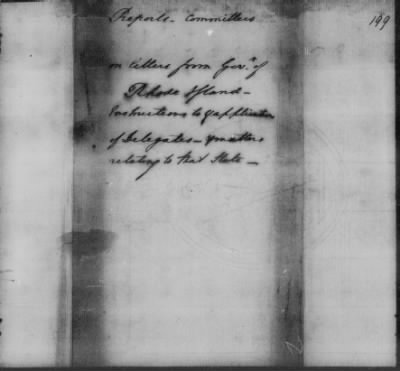 Reports - Committees
199
on letters from Gov.r of
Rhode Island -
Instructions to & application
of Delegates - & matters
relating to that State -